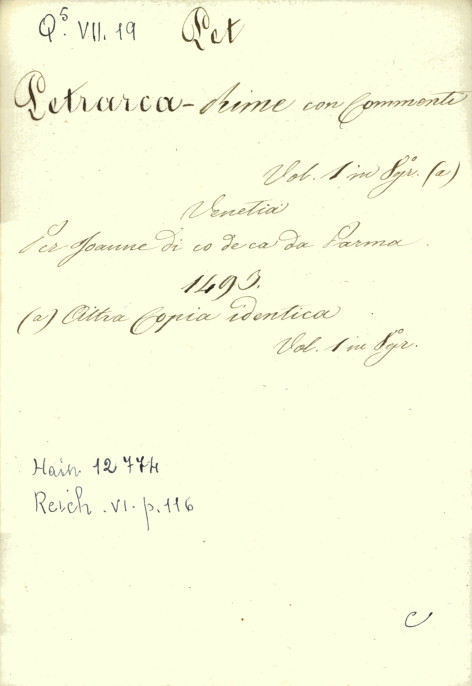 Q⁵. VII. 19 Pet
Petrarca - Rime con Commenti
Vol. 1 in 8gr.° (a)
Venetia
Per Joanne di co de ca da Parma.
1493.
(a) Altra Copia identica
Vol. 1 in 8gr.°
Hain 12774
Reich. VI. p. 116
C